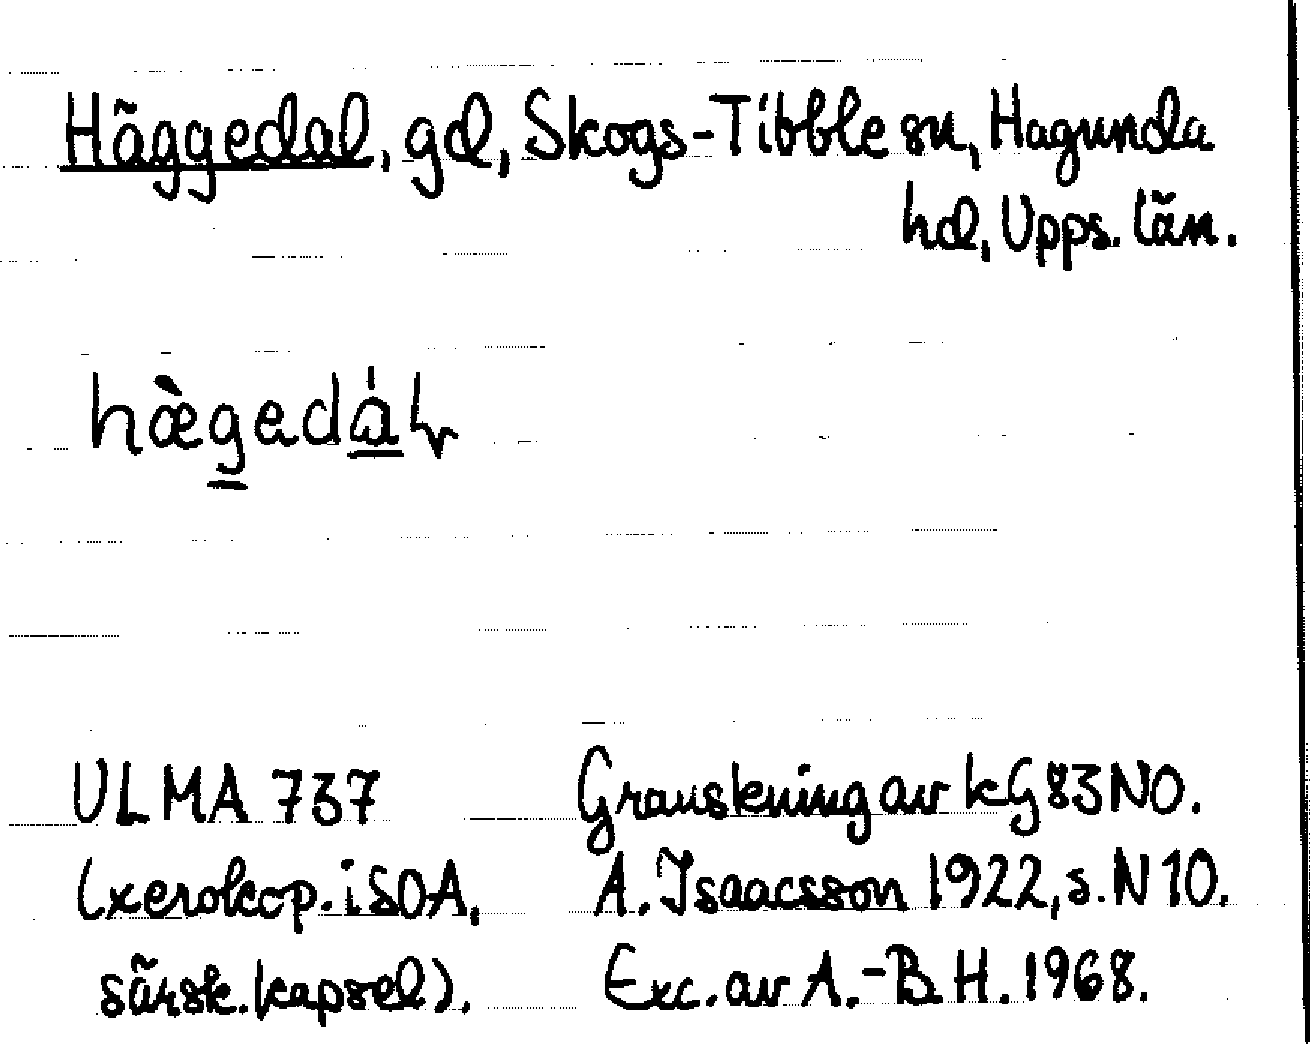 Häggedal, gd, Skogs-Tibble sn, Hagunda
hd, Upps. län.
hæ̀gedál
ULMA 737
(xerokop. i SOA,
särsk. kapsel).
Granskning av kG 83 NO.
A. Isaacsson 1922, s. N 10.
Exc. av A.-B. H. 1968.